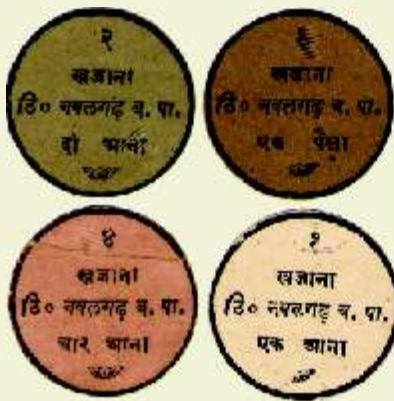 २
खजाना
ठि० नवलगढ़ ब. पा.
दो आना
खजाना
ठि० नवलगढ़ ब. पा.
एक पैसा
४
खजाना
ठि० नवलगढ़ ब. पा.
चार आना
१
खजाना
ठि० नवलगढ़ ब. पा.
एक आना